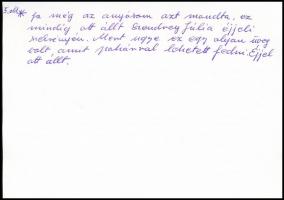 Ja még az anyósom azt mondta, ez
mindig ott állt Szendrey Júlia éjjeli
szekrényén. Mert ugye ez egy olyan üveg
volt, amit pohárral lehetett fedni. Éjjel
ott állt.